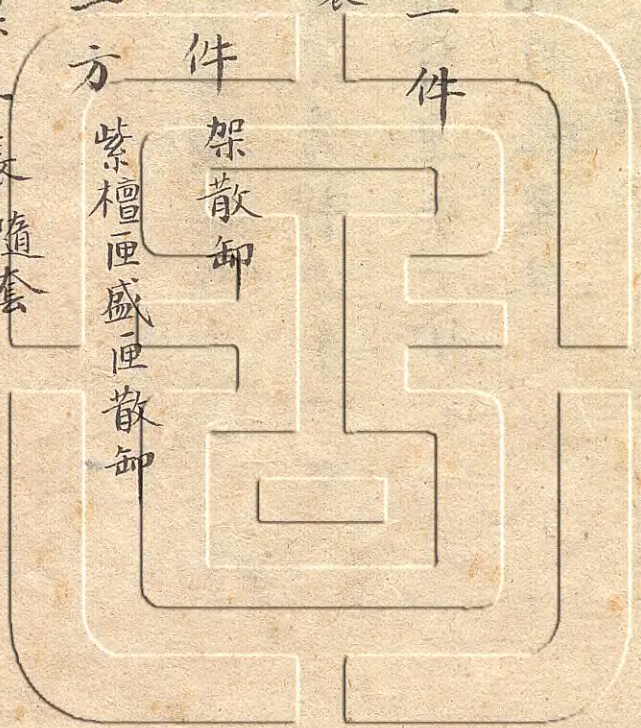 一件
件 架散卸
一方 紫檀匣盛匣散卸
隨套